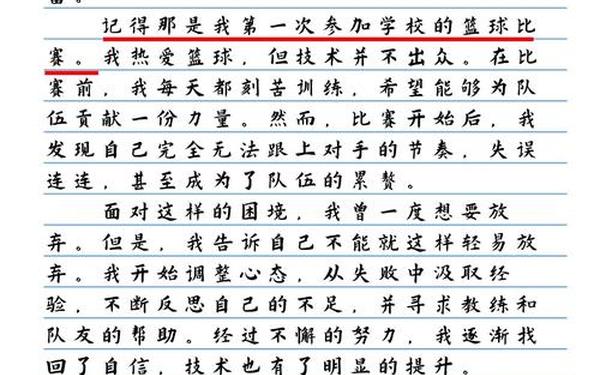 记得那是我第一次参加学校的篮球比
赛。我热爱篮球，但技术并不出众。在比
赛前，我每天都刻苦训练，希望能够为队
伍贡献一份力量。然而，比赛开始后，我
发现自己完全无法跟上对手的节奏，失误
连连，甚至成为了队伍的累赘。
面对这样的困境，我曾一度想要放
弃。但是，我告诉自己不能就这样轻易放
弃。我开始调整心态，从失败中汲取经
验，不断反思自己的不足，并寻求教练和
队友的帮助。经过不懈的努力，我逐渐找
回了自信，技术也有了明显的提升。